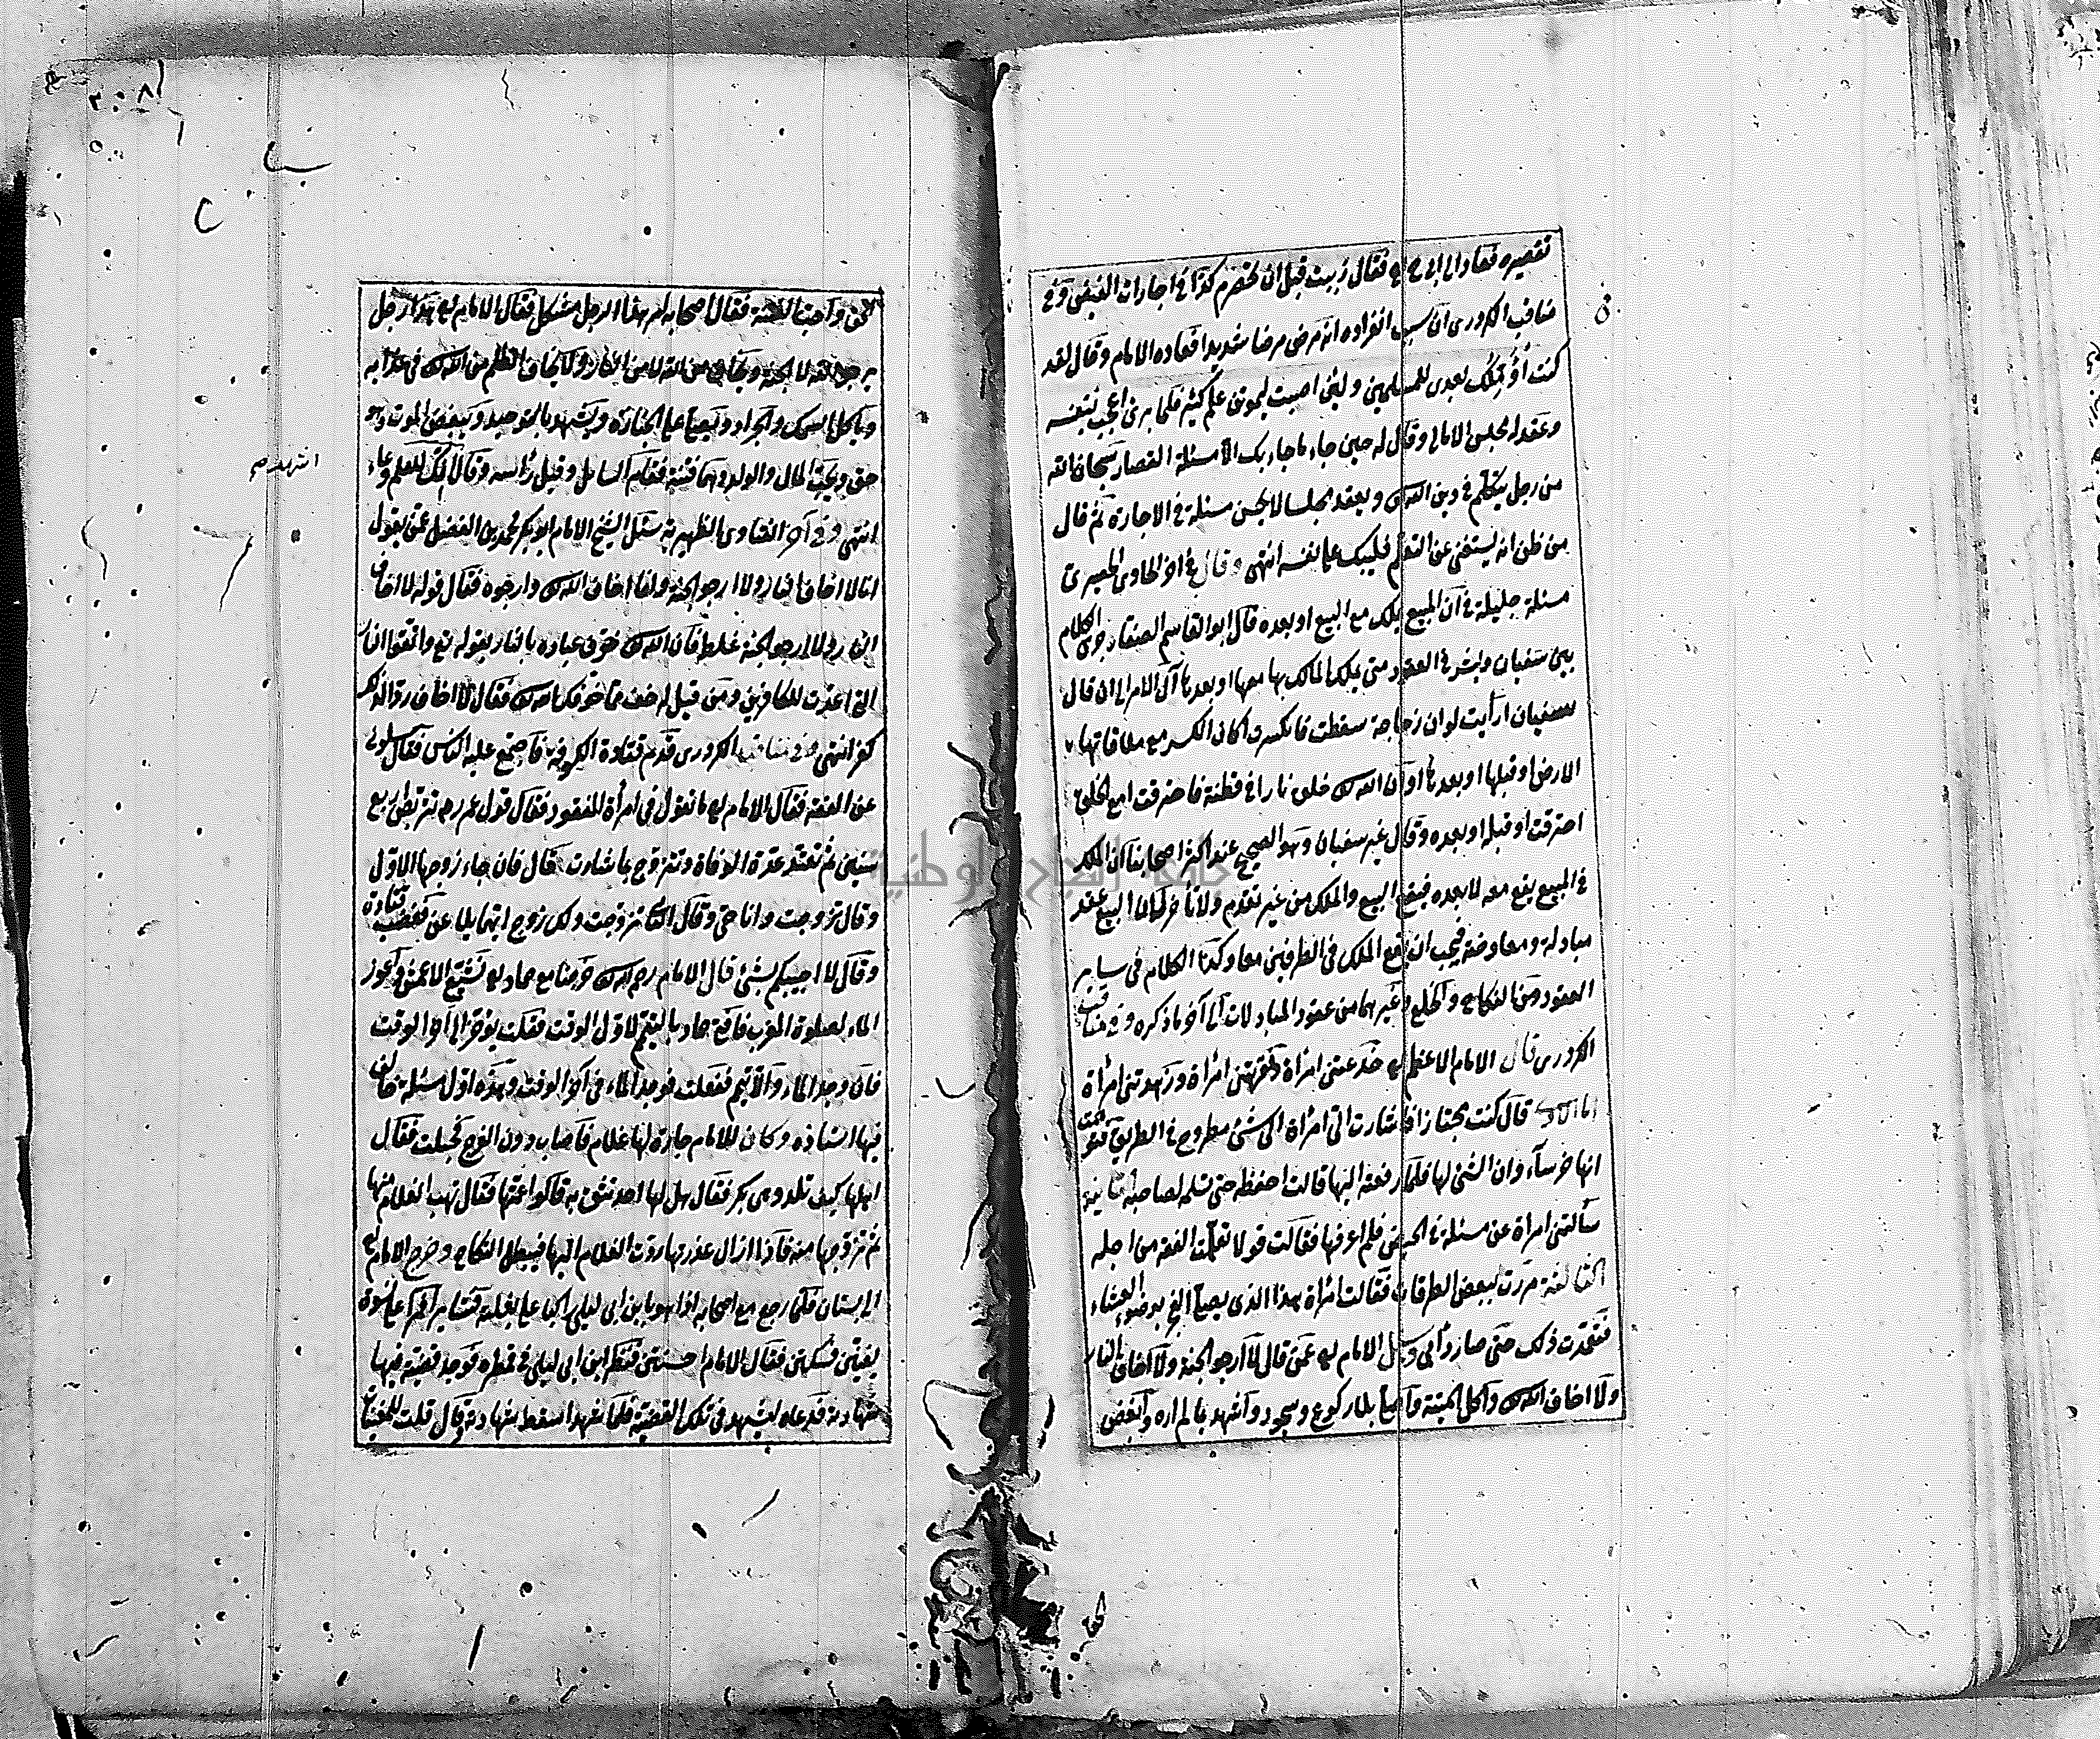 تقصيره فعاد الى ابى ح فقال زببت قبل ان تحصرم كذا فى اجارات الفيض وفى
مناقب الكردرى ان سبب انفراده انه مرض مرضا شديدا فعاده الامام وقال لقد
كنت أؤملك بعدى للمسلمين ولئن اصبت ليموتن علم كثير فلما برئ اعجب بنفسه
وعقد مجلس الامالى وقال له حين جاء ما جاء بك الا مسئلة القصار سبحان الله
من رجل يتكلم فى دين الله ويعقد مجلسا لا يحسن مسئلة فى الاجارة ثم قال
من ظن انه يستغنى عن التعلم فليبك على نفسه انتهى وقال فى اخر الحاوى الحصيرى
مسئلة جليلة فى ان المبيع يملك مع البيع او بعده قال ابو القاسم الصفار جرى الكلام
بين سفيان وبشر فى العقود متى يملك المالك بها معها او بعدها آل الامر الى ان قال
سفيان ارأيت لو ان زجاجة سقطت فانكسرت اكان الكسر مع ملاقاتها
الارض او قبلها او بعدها او ان الله خلق نارا فى قطنة فاحترقت امع الخلق
احترقت او قبله او بعده وقال غير سفيان وهو الصحيح عند اكثر اصحابنا ان الملك
فى المبيع يقع معه لا بعده فيقع البيع والملك من غير تقدم ولا تاخر لان البيع عقد
مبادلة ومعاوضة فيجب ان يقع الملك فى الطرفين معا وكذا الكلام فى ساير
العقود من النكاح والخلع وغيرهما من عقود المبادلات الى آخر ما ذكره وفى مناقب
الكردرى قال الامام الاعظم خدعتنى امرأة وفقهتنى امرأة وزهدتنى امرأة
اما الاولى قال كنت مجتازا فاشارت الى امرأة الى شئ مطروح فى الطريق فتوهمت
انها خرساء وان الشئ لها فلما رفعته اليها قالت احفظه حتى تسلمه لصاحبه الثانية
سألتنى امرأة عن مسئلة فى الحيض فلم اعرفها فقالت قولا تعلمت الفقه من اجله
الثالثة مررت ببعض الطرقات فقالت امرأة هذا الذى يصلى الفجر بوضوء العشاء
فتعمدت ذلك حتى صار دأبى وسئل الامام عمن قال لا ارجو الجنة ولا اخاف النار
ولا اخاف الله وآكل الميتة واصلى بلا ركوع وسجود واشهد بما لم اره وابغض
الحق
الحق واحب الفتنة فقال اصحابه امر هذا الرجل مشكل فقال الامام هذا رجل
يرجو الله لا الجنة ويخاف من الله لا من النار ولا يخاف الظلم من الله فى عذابه
ويأكل السمك والجراد ويصلى على الجنازة ويشهد بالتوحيد ويبغض الموت وهو
حق ويحب المال والولد وهما فتنة فقام السائل وقبل رأسه وقال انك للعلم وعاء
انتهى وفى آخر الفتاوى الظهيرية سئل الشيخ الامام ابو بكر محمد بن الفضل عمن يقول
انا لا اخاف النار ولا ارجو الجنة وانما اخاف الله وارجوه فقال قوله لا اخاف
النار ولا ارجو الجنة غلط فان الله خوف عباده بالنار بقوله تع واتقوا النار
التى اعدت للكافرين ومن قيل له خف مما خوفك الله فقال لا اخاف ردا لذلك
كفر انتهى وفى مناقب الكردرى قدم قتادة الكوفة فاجتمع عليه الناس فقال سلونى
عن الفقه فقال الامام ما تقول فى امرأة المفقود فقال قول عمر رض تتربص اربع
سنين ثم تعتد عدة الوفاة وتتزوج بما شاءت قال فان جاء زوجها الاول
وقال تزوجت وانا حى وقال الثانى تزوجت ولك زوج ايهما يلاعن فغضب قتادة
وقال لا اجيبكم بشئ قال الامام رحمه الله خرجنا مع حماد نشيع الاعمش فاعوز
الماء لصلوة المغرب فافتى حماد بالتيمم لاول الوقت فقلت يؤخر الى آخر الوقت
فان وجد الماء والا تيمم ففعلت فوجد الماء فى آخر الوقت وهذه اول مسئلة خالف
فيها استاذه وكان للامام جارة لها غلام فاصاب دون الفرج فحبلت فقال
اهلها كيف تلد وهى بكر فقال هل لها احد تثق به قالوا عمتها فقال تهب الغلام منها
ثم تزوجها منه فاذا ازال عذرتها ردت الغلام اليها فيبطل النكاح وخرج الامام
الى بستان فلما رجع مع اصحابه اذا هو بابن ابى ليلى راكبا على بغلته فتسايرا فمرا على نسوة
يغنين فسكتن فقال الامام احسنتن فنظر ابن ابى ليلى فى قمطره فوجد قضية فيها
شهادته فدعاه ليشهد فى تلك القضية فلما شهد اسقط شهادته وقال قلت للمغنيات
انتهد صح
٢٠٨
جامعة النجاح الوطنية